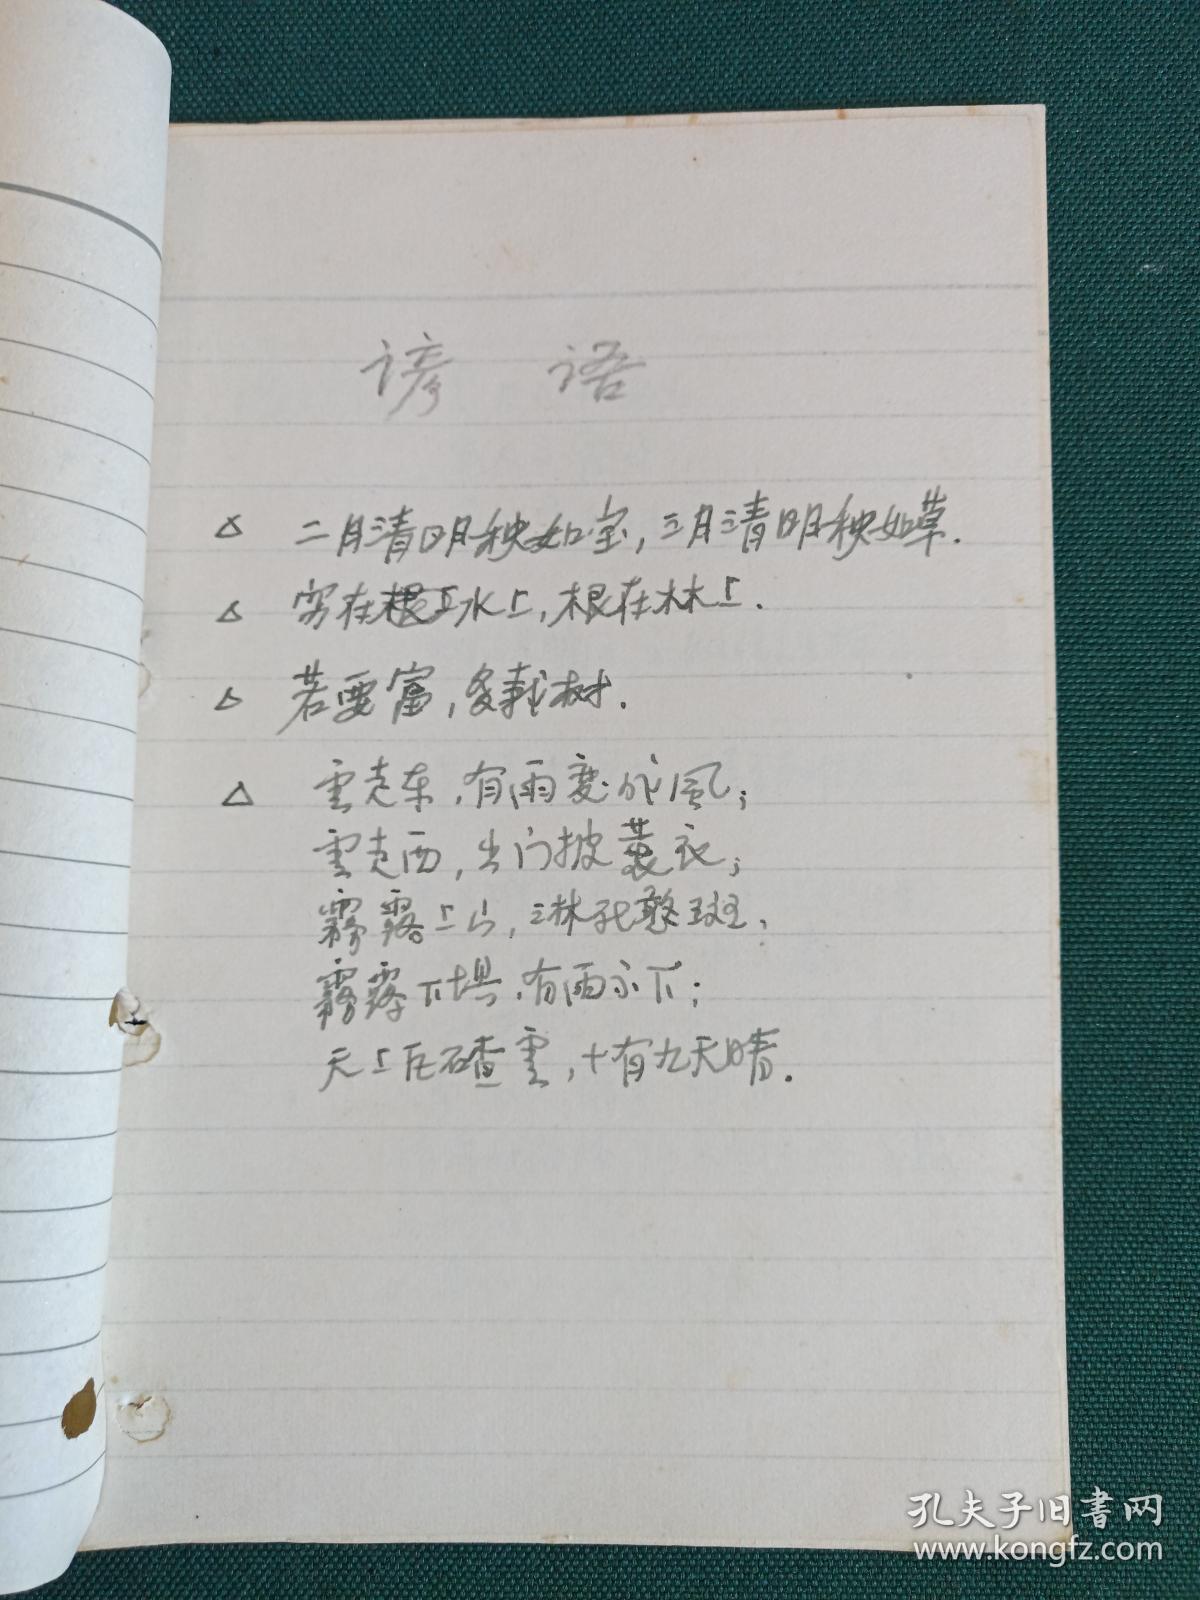 谚 语
△ 二月清明秧如宝,三月清明秧如草.
△ 穷在水上,根在林上.
△ 若要富,多栽树.
△ 雲走东,有雨变成風;
雲走西,出门披蓑衣;
霧露上山,淋死憨斑;
霧露下坝,有雨不下;
天上瓦碴雲,十有九天晴.
孔夫子旧书网
www.kongfz.com